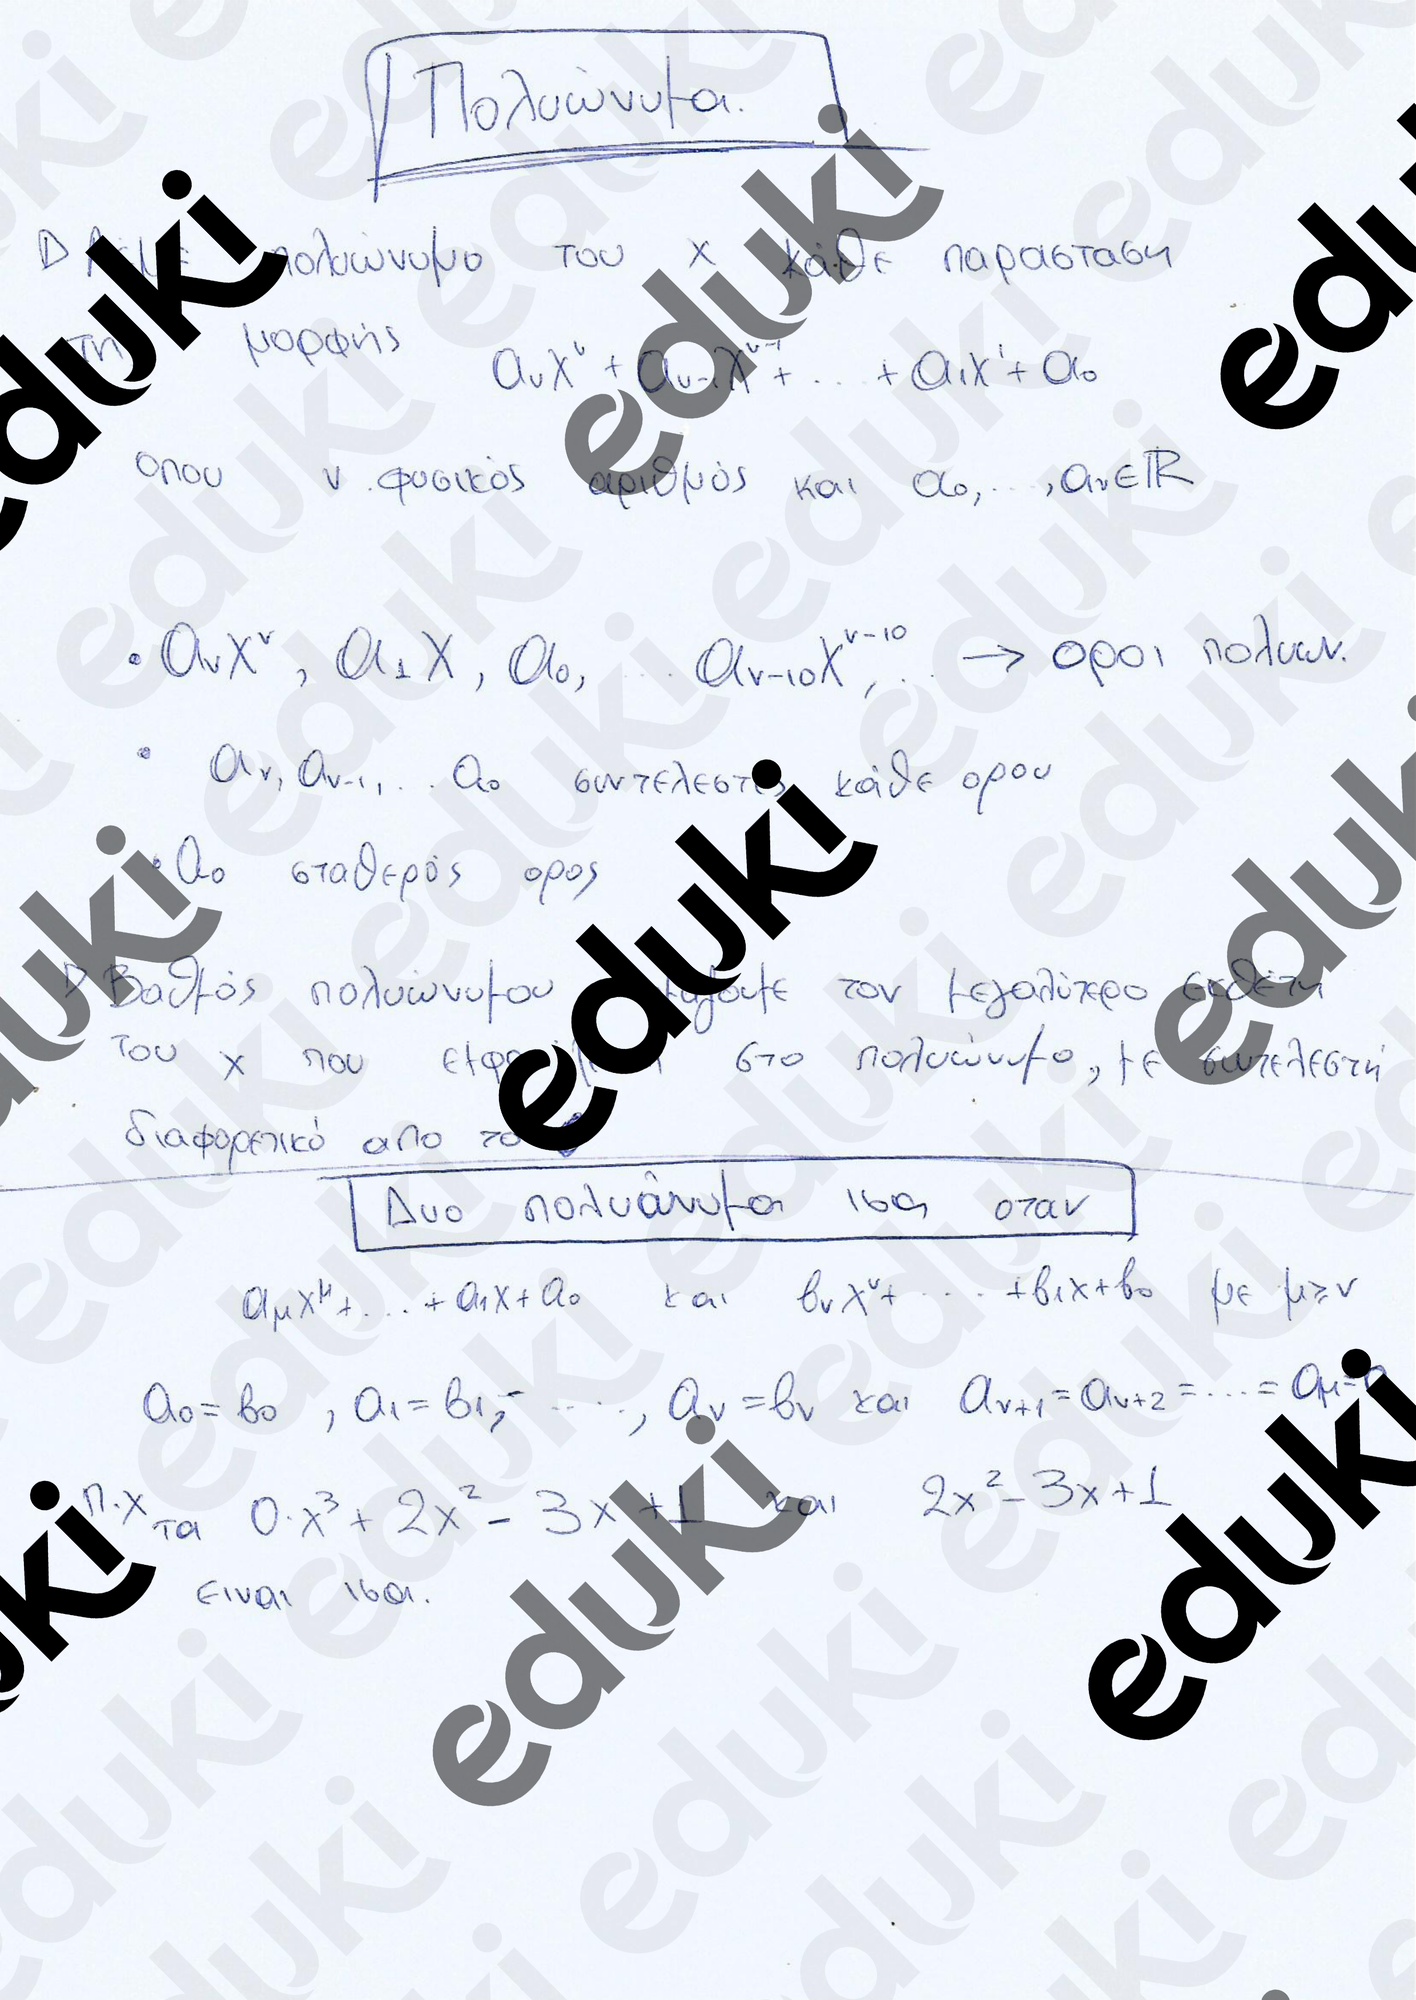 Πολυώνυμα.
πολυώνυμο του x κάθε παρασταση
της μορφής
ανxν + αν-1xν-1 + ... + α1x1 + α0
οπου ν φυσικός αριθμός και α0, ..., αν∈ℝ
• ανxν, α1x, α0, ... αν-10xν-10, .. → οροι πολυων.
• αν, αν-1, ... α0 συντελεστές κάθε ορου
• α0 σταθερός ορος
Βαθμός πολυώνυμου τον μεγαλύτερο εκθέτη
του x που στο πολυώνυμο, με συντελεστή
διαφορετικό απο το 0
Δυο πολυώνυμα ισα οταν
αμxμ + ... + α1x + α0 και βνxν + ... + β1x + β0 με μ≥ν
α0 = β0, α1 = β1, ....., αν = βν και αν+1 = αν+2 = .... = αμ = 0
π.χ τα 0·x³ + 2x² - 3x + 1 και 2x² - 3x + 1
ειναι ισα.
eduki